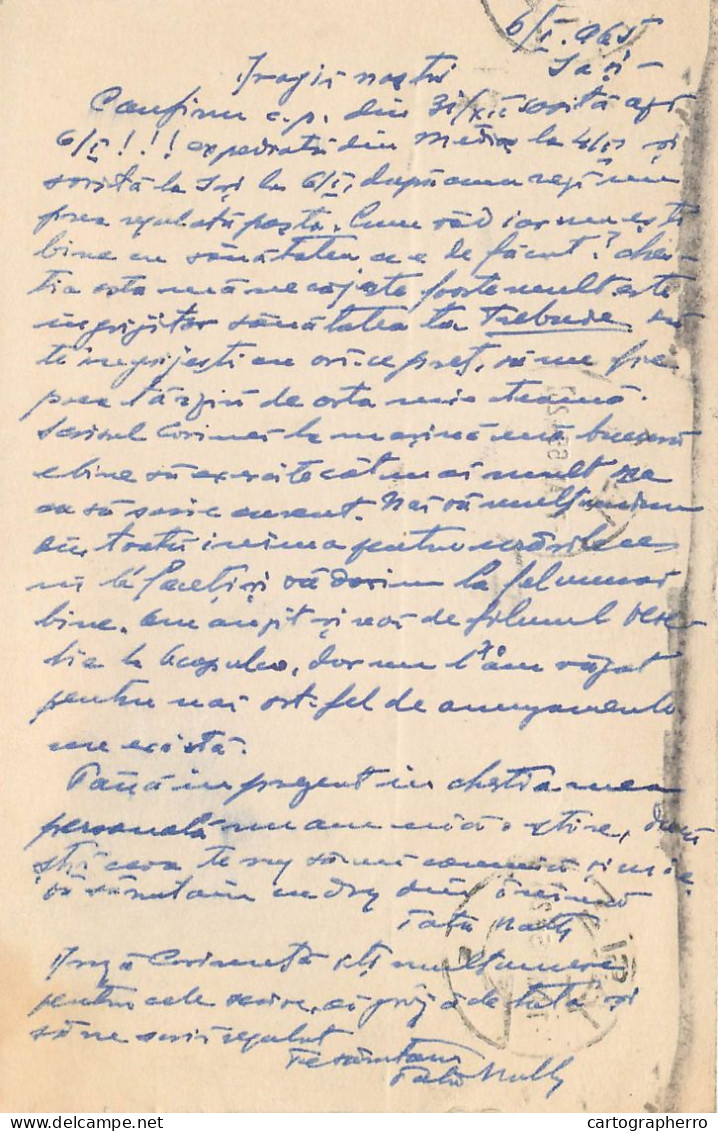 6/I.965
Iași-
Dragii noștri
Confirm c.p. din 31/XII sosită azi
6/I!!! expediată din Mediaș la 4/I și
sosită la Iași la 6/I, după amiază nu
prea regulată poșta. Cum văd iar nu ești
bine cu sănătatea ce e de făcut? ches-
tia asta mă necăjește foarte mult, este
îngrijitor sănătatea ta Trebuie să
te îngrijești cu orice preț, să nu fie
prea târziu de asta mie teamă.
Scrisul Corinei la mașină mă bucură
e bine să exercite cât mai mult
ca să scrie curent. Noi vă mulțumim
cu toată inima pentru urările ce
ni le faceți și vă dorim la fel numai
bine. Am auzit și noi de filmul
la Acapulco, dar nu l'am văzut
pentru noi ast-fel de amuzamente
nu există.
Până în prezent în chestia mea
personală nu am nici o știre, dacă
știi ceva te rog să mă comunici și mie
Vă sărutăm cu drag din inimă
Tata
Dragă Corinuță îți mulțumesc
pentru cele scrise, ai grijă de tata și
să ne scrii regulat
Te sărutăm
cartographerro